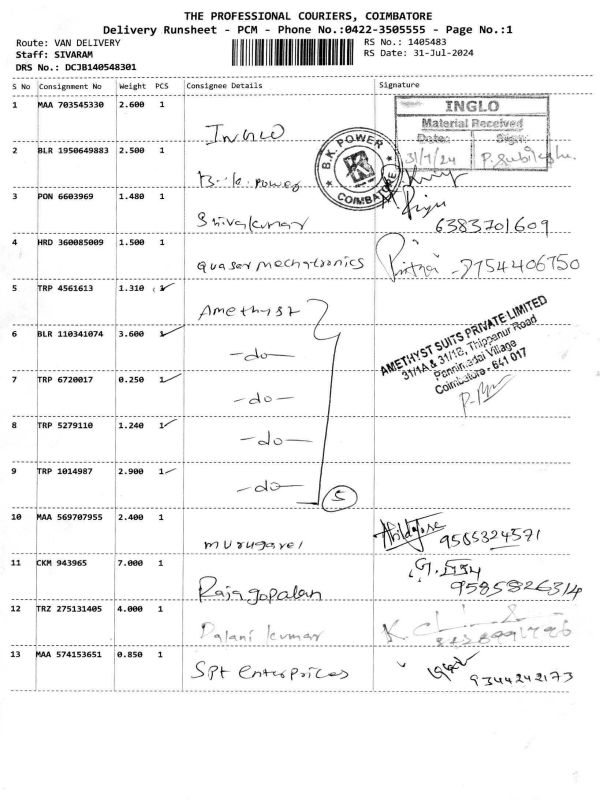 THE PROFESSIONAL COURIERS, COIMBATORE
Delivery Runsheet - PCM - Phone No.:0422-3505555 - Page No.:1
Route: VAN DELIVERY
RS No.: 1405483
Staff: SIVARAM
RS Date: 31-Jul-2024
DRS No.: DCJB140548301
S No Consignment No Weight PCS Consignee Details Signature
1 MAA 703545330 2.600 1 INGLO
INGLO
Material Received
Date: Sign:
31/7/24
2 BLR 1950649883 2.500 1 B.K. Power
B.K POWER
COIMBATORE
3 PON 6603969 1.480 1 Sivakumar
6383701609
4 HRD 360085009 1.500 1 Quasar mechatronics
5 TRP 4561613 1.310 1 Amethyst
6 BLR 110341074 3.600 1 -do-
AMETHYST SUITS PRIVATE LIMITED
31/1A & 31/1B, Thippanur Road
Pannimadai Village
Coimbatore - 641 017
7 TRP 6720017 0.250 1 -do-
8 TRP 5279110 1.240 1 -do-
9 TRP 1014987 2.900 1 -do-
5
10 MAA 569707955 2.400 1 murugavel
9585324571
11 CKM 943965 7.000 1 Rajagopalan
9585826314
12 TRZ 275131405 4.000 1 Palani kumar
13 MAA 574153651 0.850 1 SPT enterprices
9344242173